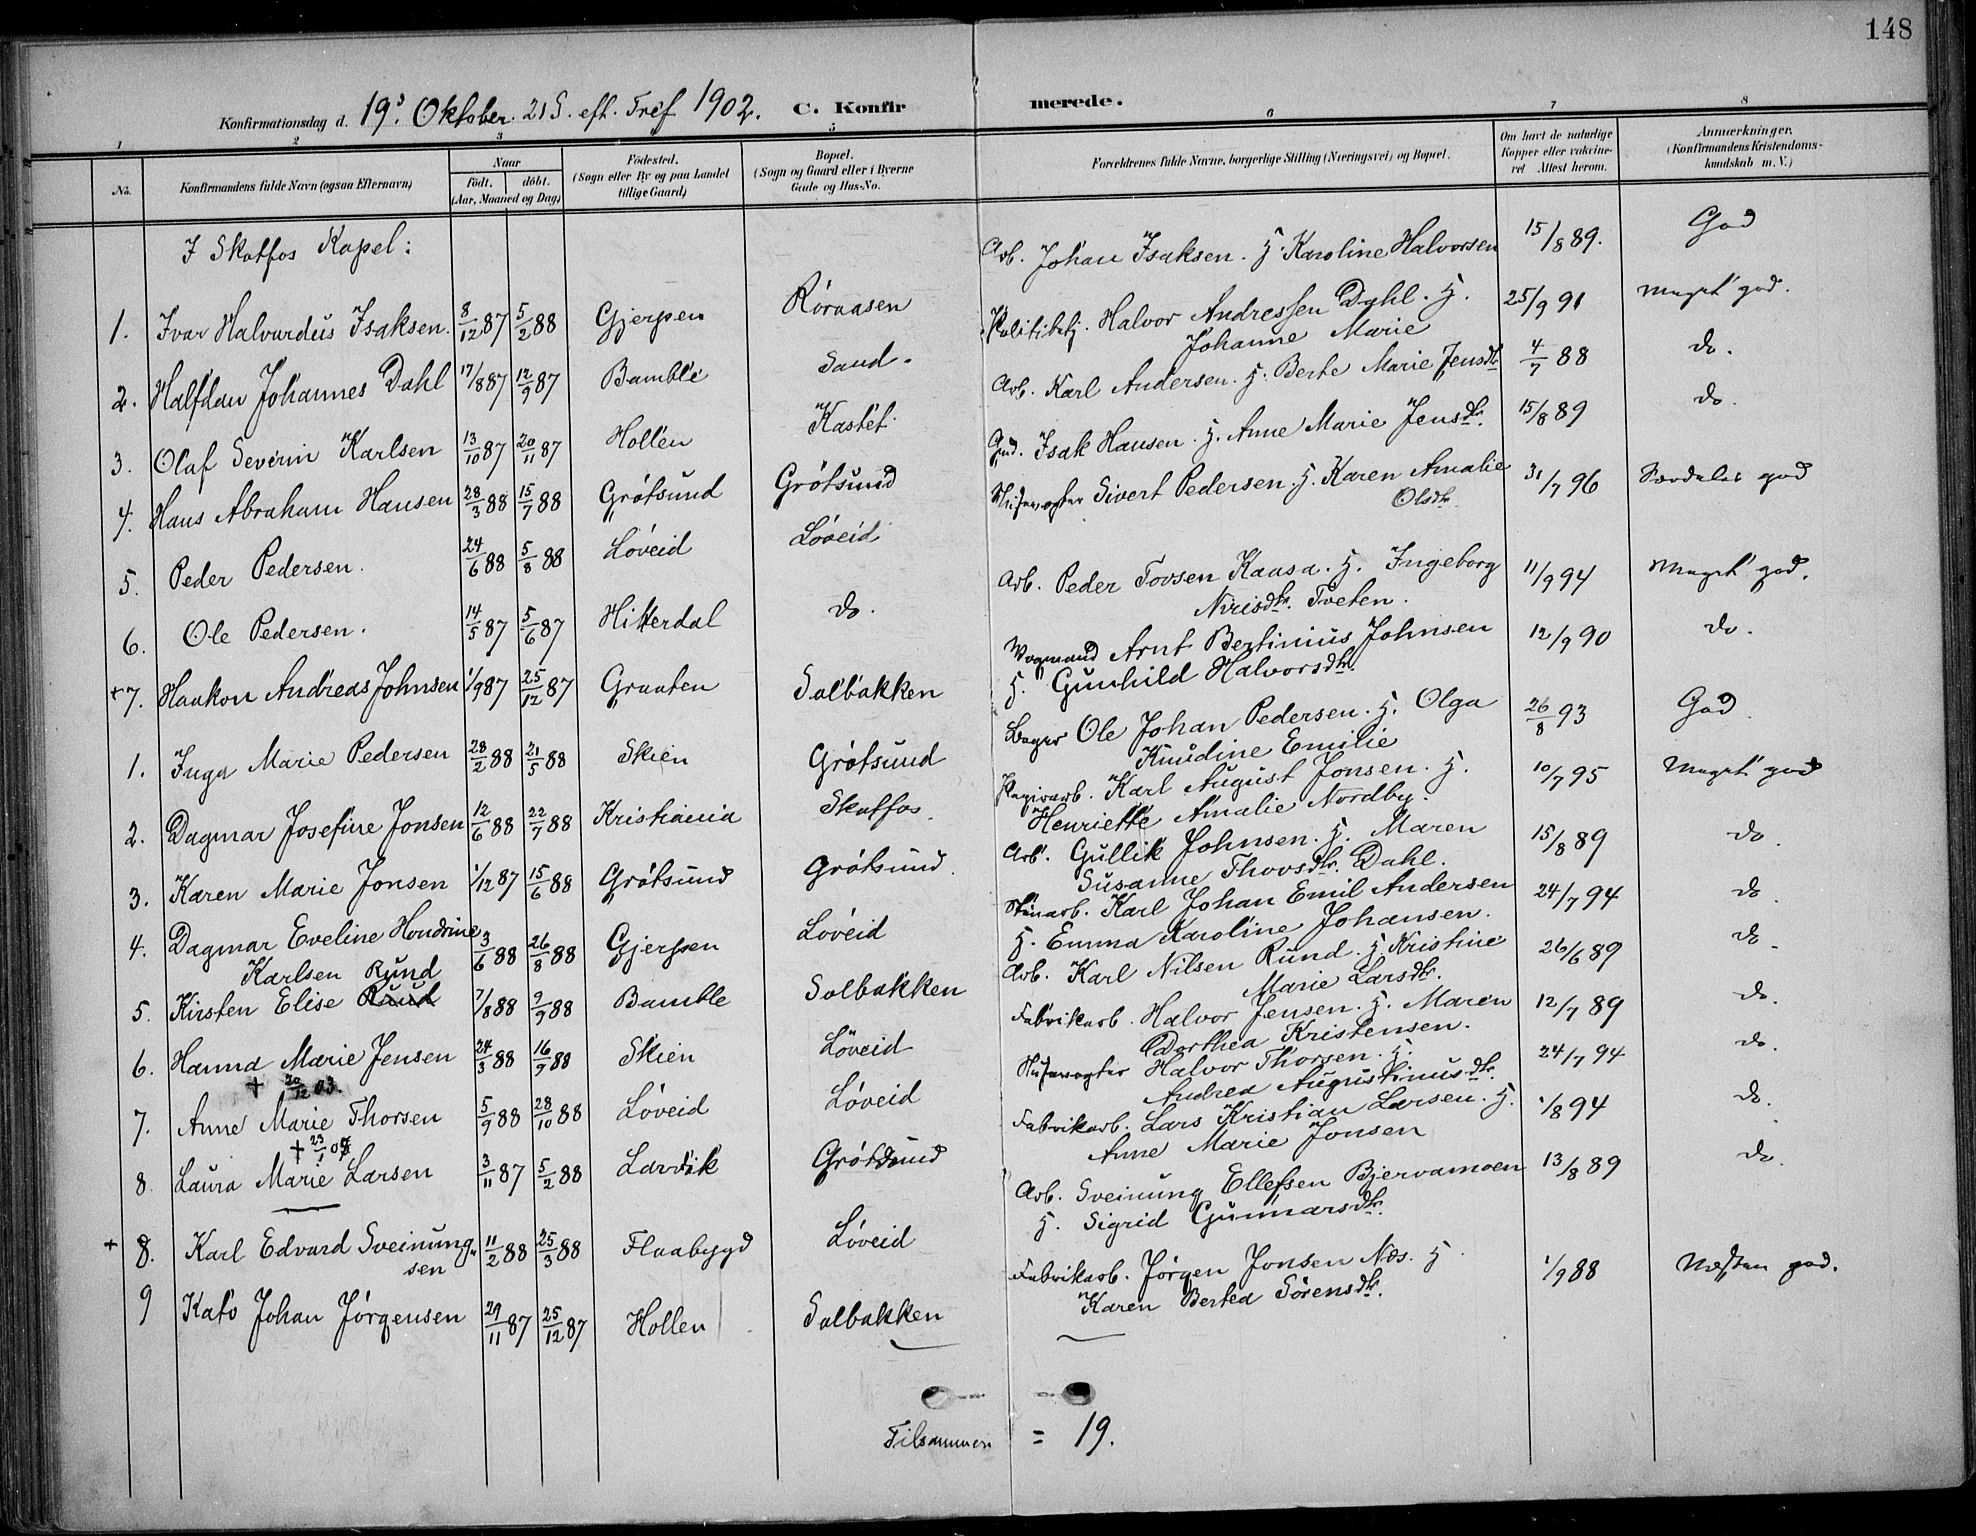 148
Konfirmationsdag d. 19de Oktober. 21 S. eft. Tref 1902. C. Konfirmerede.
1 2 3 5 6 7 8
No. Konfirmandens fulde Navn (ogsaa Efternavn) Naar født. døbt. (Aar, Maaned og Dag) Fødested. (Sogn eller By og paa Landet tillige Gaard) Bopæl. (Sogn og Gaard eller i Byerne Gade og Hus-No. Forældrenes fulde Navne, borgerlige Stilling (Næringsvei) og Bopæl. Om havt de naturlige Kopper eller vaccineret Attest herom. Anmærkninger. (Konfirmandens Kristendomskundskab m. V.)
I Skotfos Kapel:
1. Ivar Halvardus Isaksen. 8/12 87 5/2 88 Gjerpen Røraasen Arb. Johan Isaksen. H. Karoline Halvorsen 15/8 89. God
2. Halfdan Johannes Dahl 17/8 87 12/9 87 Bamble Sand. Politibetj. Halvor Andressen Dahl. H. 25/9 91 Meget god.
Johanne Marie
3. Olaf Severin Karlsen 13/10 87 20/11 87 Hollen Kastet. Arb. Karl Andersen. H. Berte Marie Jensdtr 4/7 88 do.
4. Hans Abraham Hansen 28/3 88 15/7 88 Grøtsund Grøtsund Isak Hansen. H. Anne Marie Jensdtr. 15/8 89 do.
5. Peder Pedersen. 24/6 88 5/8 88 Løveid Løveid Slusevogter Sivert Pedersen. H. Karen Amalie 31/7 96 Særdeles god
Olsdtr.
6. Ole Pedersen. 14/5 87 5/6 87 Hitterdal do. Arb. Peder Tovsen Kaasa. H. Ingeborg 11/9 94 Meget god.
Nirisdtr. Tveten.
+7. Haakon Andreas Johnsen 1/9 87 25/12 87 Graaten Solbakken Vognmand Arnt Bertinius Johnsen 12/9 90 do.
H. Gunhild Halvorsdtr.
1. Inga Marie Pedersen 28/2 88 21/5 88 Skien Grøtsund Bager Ole Johan Pedersen. H. Olga 26/8 93 God.
Knudine Emilie
2. Dagmar Josefine Jonsen 12/6 88 22/7 88 Kristiania Skotfos. Papirarb. Karl August Jonsen. H. 10/7 95 Meget god
Henriette Amalie Nordby.
3. Karen Marie Jonsen 1/12 87 15/6 88 Grøtsund Grøtsund. Arb. Gullik Johnsen. H. Maren 15/8 89 do.
Susanne Thovsdtr. Dahl.
4. Dagmar Eveline Hendrine 3/6 88 26/8 88 Gjerpen Løveid Stenarb. Karl Johan Emil Andersen 24/7 94 do.
Karlsen H. Emma Karoline Johansen.
5. Kirsten Elise Rund Rund 7/8 88 9/9 88 Bamble Solbakken Arb. Karl Nilsen Rund. H. Kristine 26/6 89 do.
Marie Larsdtr.
6. Hanna Marie Jensen 24/3 88 16/9 88 Skien Løveid Fabrikarb. Halvor Jensen. H. Maren 12/7 89 do.
+ 20/12 03. Dorthea Kristensen.
7. Anne Marie Thorsen 5/9 88 28/10 88 Løveid Løveid Slusevogter Halvor Thorsen. H. 24/7 94 do.
+ 23/1 0 Andrea Augustinusdtr.
8. Laura Marie Larsen 3/11 87 5/2 88 Larvik Grøtsund Fabrikarb. Lars Kristian Larsen. H. 1/8 94 do.
Anne Marie Jonsen
+ 8. Karl Edvard Sveinungsen 11/2 88 25/3 88 Flaabygd Løveid Arb. Sveinung Ellefsen Bjervamoen 13/8 89 do.
H. Sigrid Gunnarsdtr.
9 Kato Johan Jørgensen 29/11 87 25/12 87 Hollen Solbakken Fabrikarb. Jørgen Jonsen Næs. H. 1/9 88 Næsten god.
Karen Bertea Sørensdtr.
Tilsammen = 19.